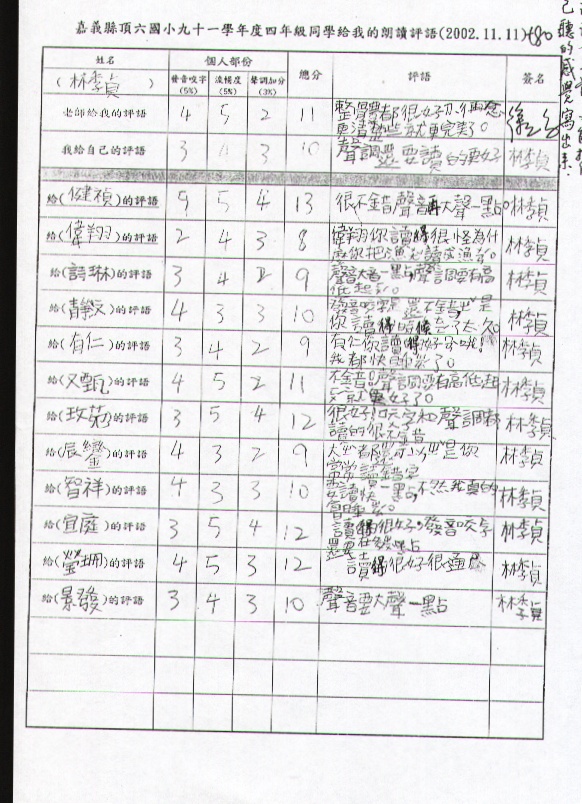 嘉義縣頂六國小九十一學年度四年級同學給我的朗讀評語(2002.11.11)+80
己聽的感覺寫出來
姓名 個人部份 總分 評語 簽名
(林季貞) 發音咬字(5%) 流暢度(5%) 聲調加分(3%)
老師給我的評語 4 5 2 11 整體都很好
更清楚些就更完美了。
我給自己的評語 3 4 3 10 聲調還要讀的更好 林季貞
給(健禎)的評語 5 5 4 13 很不錯聲音再大聲一點。 林季貞
給(偉翔)的評語 2 4 3 8 偉翔你讀得很怪為什
麼你把漁夫讀成漁翁。 林季貞
給(詩琳)的評語 3 4 2 9 聲音大聲一點,聲調要有高
低起伏。 林季貞
給(靜紋)的評語 4 3 3 10 發音咬字還不錯,可是
你讀得時候 太久。 林季貞
給(有仁)的評語 3 4 2 9 有仁你讀得好好哦!
我都快 了。 林季貞
給(又甄)的評語 4 5 2 11 不錯!聲調要有高低起
伏就更好了。 林季貞
給(玫茹)的評語 3 5 4 12 很好!咬字和聲調都
讀的很不錯 林季貞
給(辰鑾)的評語 4 3 2 9 大 可以,可是你
錯字 林季貞
給(智祥)的評語 4 3 3 10 要讀快一點,不然我真的
會睡 林季貞
給(宜庭)的評語 3 5 4 12 讀得很好。發音咬字
還要 一點 林季貞
給(瑩珊)的評語 4 5 3 12 讀得很好很 林季貞
給(景發)的評語 3 4 3 10 聲音要大聲一點 林季貞